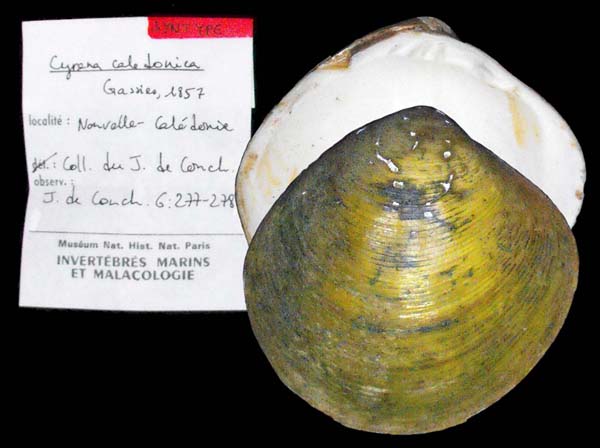 SYNTYPE
Cyrena caledonica
Gassies, 1857
localité : Nouvelle-Calédonie
dét. : Coll. du J. de Conch.
observ. :
J. de Conch. 6:277-278
Muséum Nat. Hist. Nat. Paris
INVERTÉBRÉS MARINS
ET MALACOLOGIE